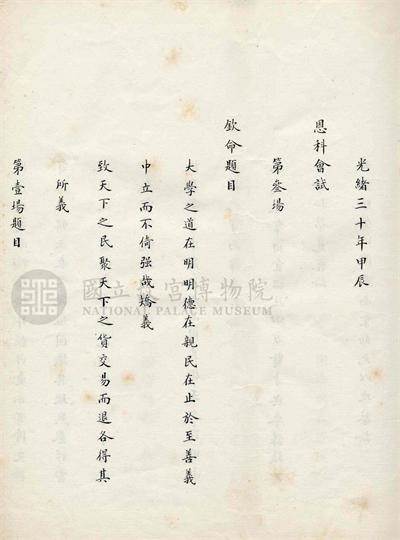 光緒三十年甲辰
恩科會試
第叄場
欽命題目
大學之道在明明德在親民在止於至善義
中立而不倚强哉矯義
致天下之民聚天下之貨交易而退各得其
所義
第壹場題目
國立故宮博物院
NATIONAL PALACE MUSEUM